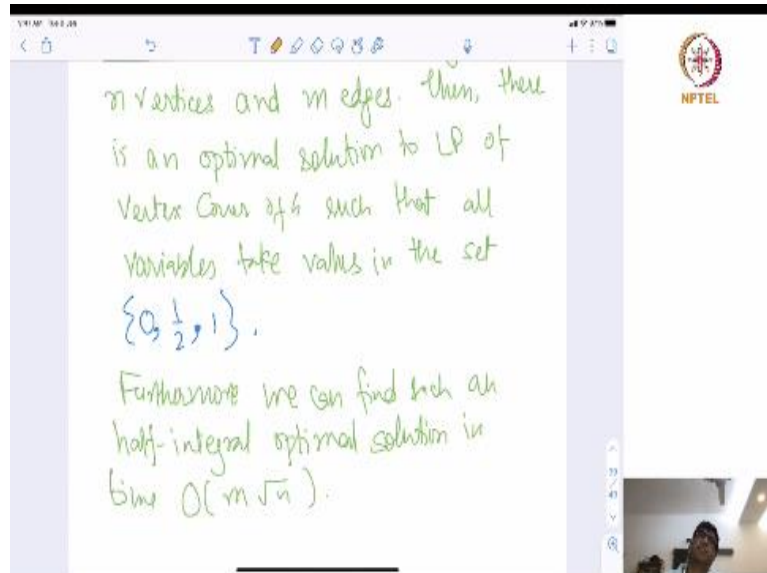 n vertices and m edges. Then, there
is an optimal solution to LP of
Vertex Cover of G such that all
variables take values in the set
{0, 1/2, 1}.
Furthermore we can find such an
half-integral optimal solution in
time O(m√n).
NPTEL